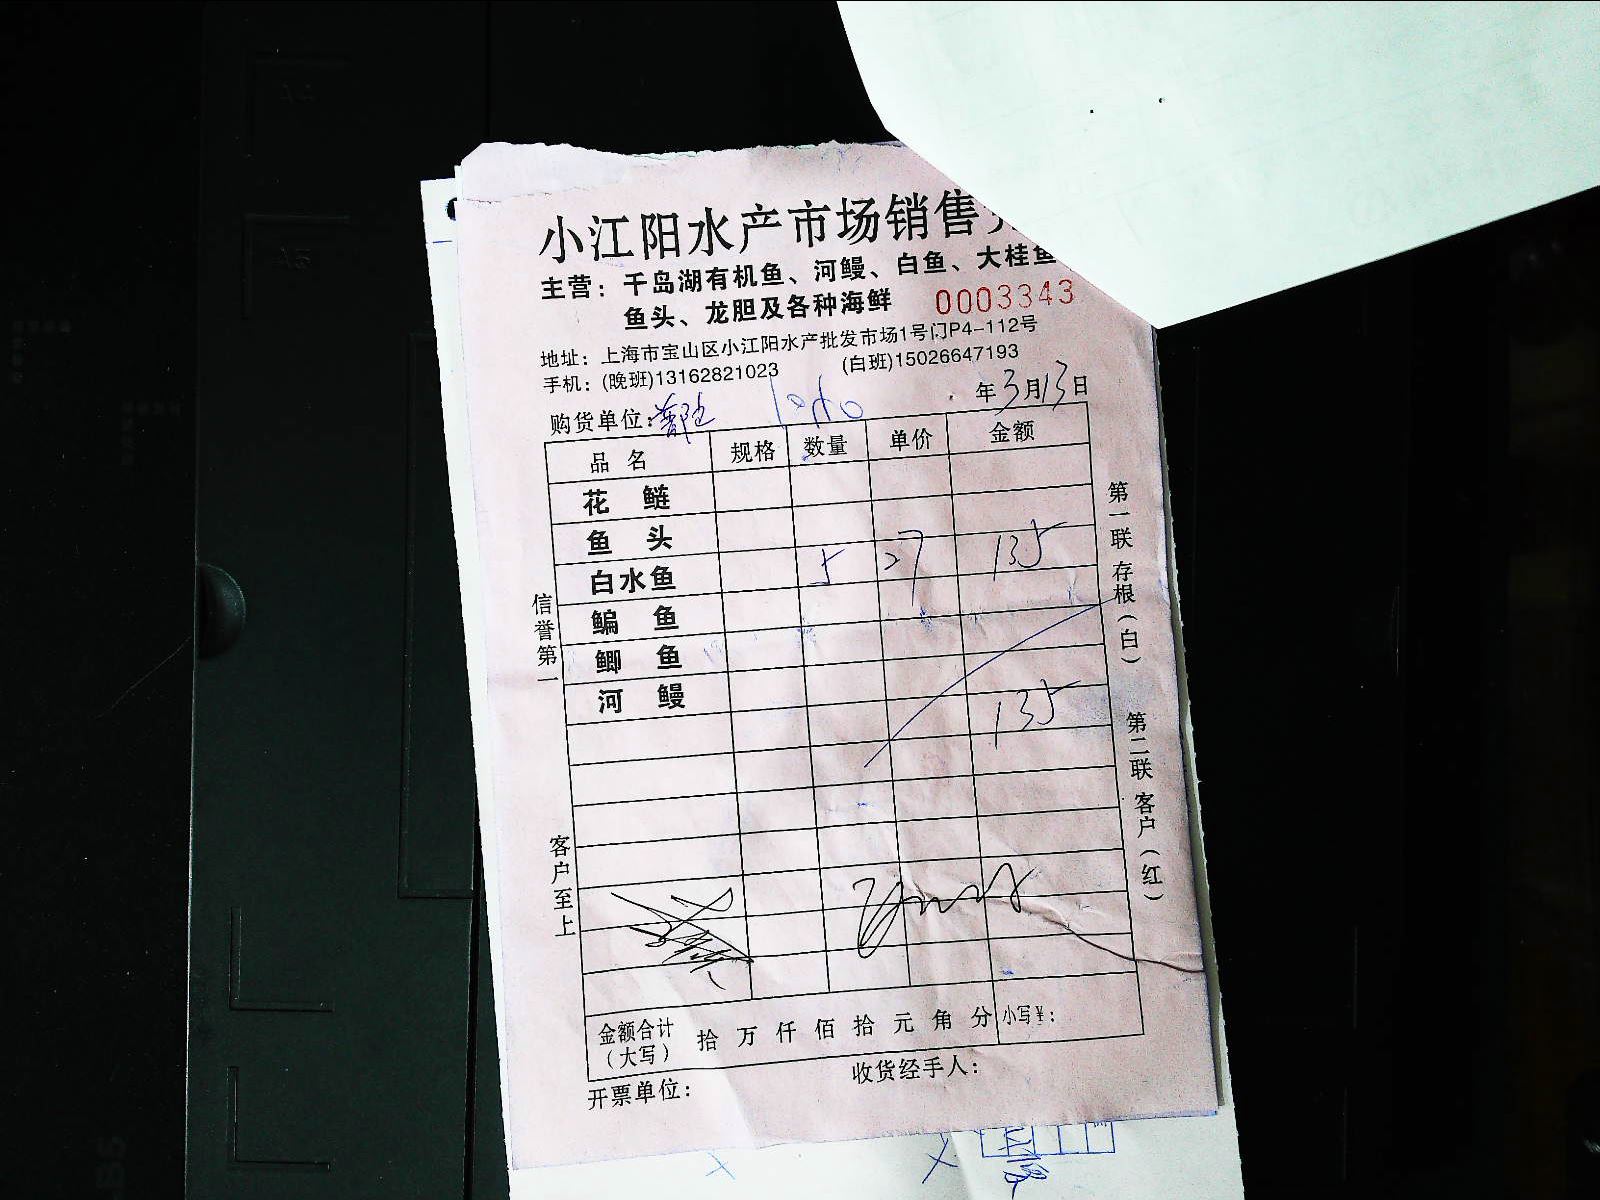 小江阳水产市场销售
主营：千岛湖有机鱼、河鳗、白鱼、大桂鱼
鱼头、龙胆及各种海鲜 0003343
地址：上海市宝山区小江阳水产批发市场1号门P4-112号
手机：(晚班)13162821023 (白班)15026647193
年3月13日
购货单位：
品名 规格 数量 单价 金额
花鲢
鱼头
白水鱼 5 27 135
鳊鱼
鲫鱼
河鳗 135
金额合计（大写） 拾万仟佰拾元角分 小写¥：
开票单位： 收货经手人：
信誉第一
客户至上
第一联 存根（白）
第二联 客户（红）